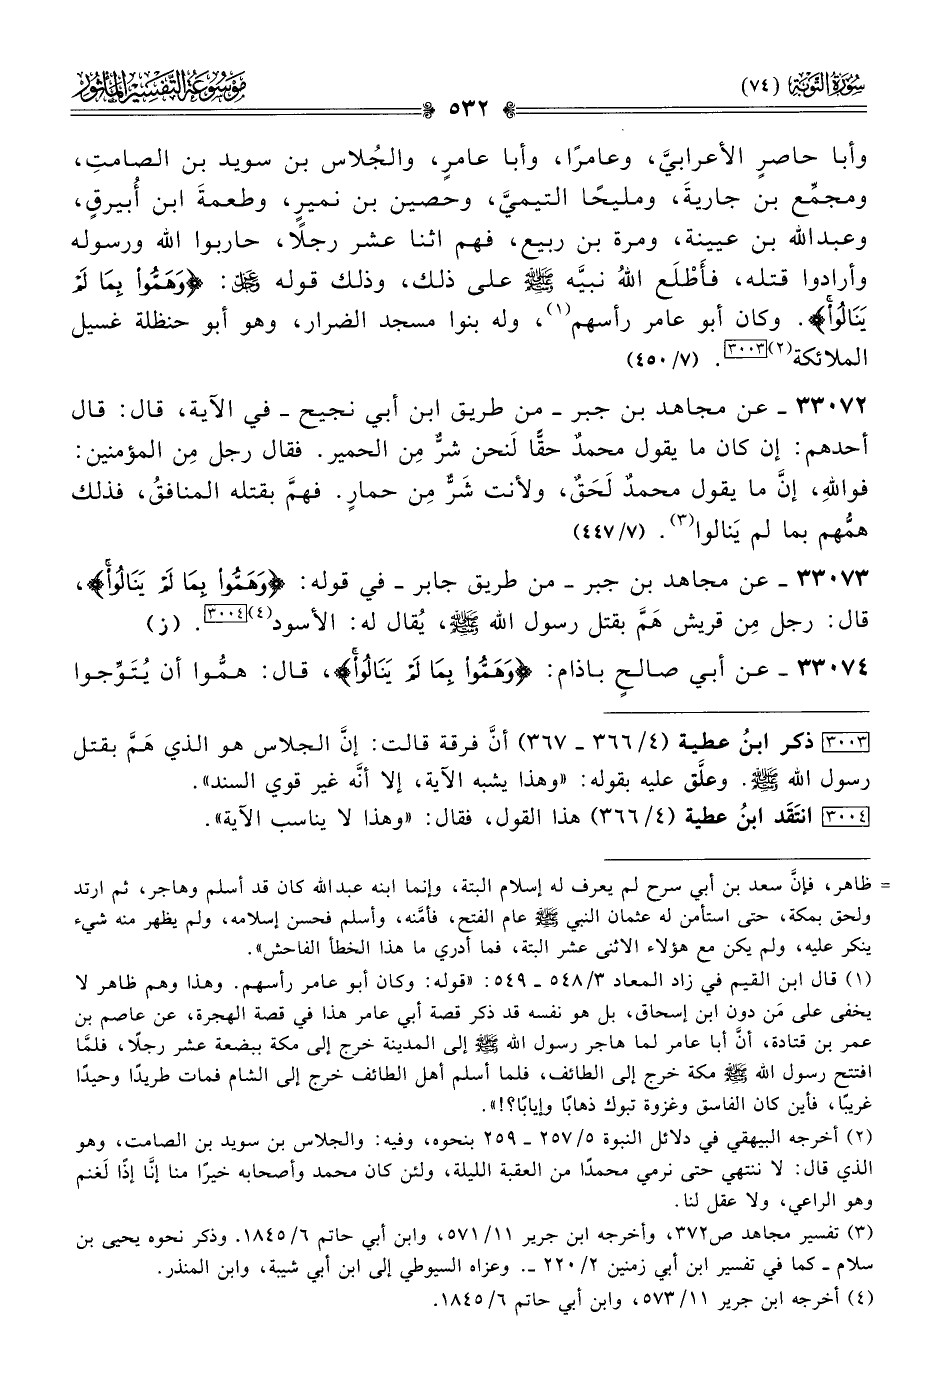 سورة التوبة (٧٤)
موسوعة التفسير المأثور
٥٣٢
وأبا حاصرٍ الأعرابيَّ، وعامرًا، وأبا عامرٍ، والجُلاس بن سويد بن الصامتِ،
ومجمِّع بن جاريةَ، ومليحًا التيميَّ، وحصين بن نميرٍ، وطعمةَ ابن أُبيرقٍ،
وعبدالله بن عيينة، ومرة بن ربيع، فهم اثنا عشر رجلًا، حاربوا الله ورسوله
وأرادوا قتله، فأَطْلَع اللهُ نبيَّه ﷺ على ذلك، وذلك قوله ﷿: ﴿وَهَمُّوا۟ بِمَا لَمْ
يَنَالُوا۟ۚ﴾. وكان أبو عامر رأسهم(١)، وله بنوا مسجد الضرار، وهو أبو حنظلة غسيل
الملائكة(٢)[٣٠٠٣]. (٧/ ٤٥٠)
٣٣٠٧٢ ـ عن مجاهد بن جبر ـ من طريق ابن أبي نجيح ـ في الآية، قال: قال
أحدهم: إن كان ما يقول محمدٌ حقًّا لَنحن شرٌّ مِن الحمير. فقال رجل مِن المؤمنين:
فواللهِ، إنَّ ما يقول محمدٌ لَحَقٌ، ولأنت شَرٌّ مِن حمارٍ. فهمَّ بقتله المنافقُ، فذلك
همُّهم بما لم يَنالوا(٣). (٧/ ٤٤٧)
٣٣٠٧٣ ـ عن مجاهد بن جبر ـ من طريق جابر ـ في قوله: ﴿وَهَمُّوا۟ بِمَا لَمْ يَنَالُوا۟ۚ﴾،
قال: رجل مِن قريش هَمَّ بقتل رسول الله ﷺ، يُقال له: الأسود(٤)[٣٠٠٤]. (ز)
٣٣٠٧٤ ـ عن أبي صالحٍ باذام: ﴿وَهَمُّوا۟ بِمَا لَمْ يَنَالُوا۟ۚ﴾، قال: همُّوا أن يُتَوِّجوا
[٣٠٠٣] ذكر ابنُ عطية (٤/ ٣٦٦ ـ ٣٦٧) أنَّ فرقة قالت: إنَّ الجلاس هو الذي هَمَّ بقتل
رسول الله ﷺ. وعلَّق عليه بقوله: «وهذا يشبه الآية، إلا أنَّه غير قوي السند».
[٣٠٠٤] انتَقَد ابنُ عطية (٤/ ٣٦٦) هذا القول، فقال: «وهذا لا يناسب الآية».
= ظاهر، فإنَّ سعد بن أبي سرح لم يعرف له إسلام البتة، وإنما ابنه عبدالله كان قد أسلم وهاجر، ثم ارتد
ولحق بمكة، حتى استأمن له عثمان النبي ﷺ عام الفتح، فأمَّنه، وأسلم فحسن إسلامه، ولم يظهر منه شيء
ينكر عليه، ولم يكن مع هؤلاء الاثنى عشر البتة، فما أدري ما هذا الخطأ الفاحش».
(١) قال ابن القيم في زاد المعاد ٣/ ٥٤٨ ـ ٥٤٩: «قوله: وكان أبو عامر رأسهم. وهذا وهم ظاهر لا
يخفى على مَن دون ابن إسحاق، بل هو نفسه قد ذكر قصة أبي عامر هذا في قصة الهجرة، عن عاصم بن
عمر بن قتادة، أنَّ أبا عامر لما هاجر رسول الله ﷺ إلى المدينة خرج إلى مكة ببضعة عشر رجلًا، فلمَّا
افتتح رسول الله ﷺ مكة خرج إلى الطائف، فلما أسلم أهل الطائف خرج إلى الشام فمات طريدًا وحيدًا
غريبًا، فأين كان الفاسق وغزوة تبوك ذهابًا وإيابًا؟!».
(٢) أخرجه البيهقي في دلائل النبوة ٥/ ٢٥٧ ـ ٢٥٩ بنحوه، وفيه: والجلاس بن سويد بن الصامت، وهو
الذي قال: لا ننتهي حتى نرمي محمدًا من العقبة الليلة، ولئن كان محمد وأصحابه خيرًا منا إنَّا إذًا لَغنم
وهو الراعي، ولا عقل لنا.
(٣) تفسير مجاهد ص٣٧٢، وأخرجه ابن جرير ١١/ ٥٧١، وابن أبي حاتم ٦/ ١٨٤٥. وذكر نحوه يحيى بن
سلام ـ كما في تفسير ابن أبي زمنين ٢/ ٢٢٠ ـ. وعزاه السيوطي إلى ابن أبي شيبة، وابن المنذر.
(٤) أخرجه ابن جرير ١١/ ٥٧٣، وابن أبي حاتم ٦/ ١٨٤٥.